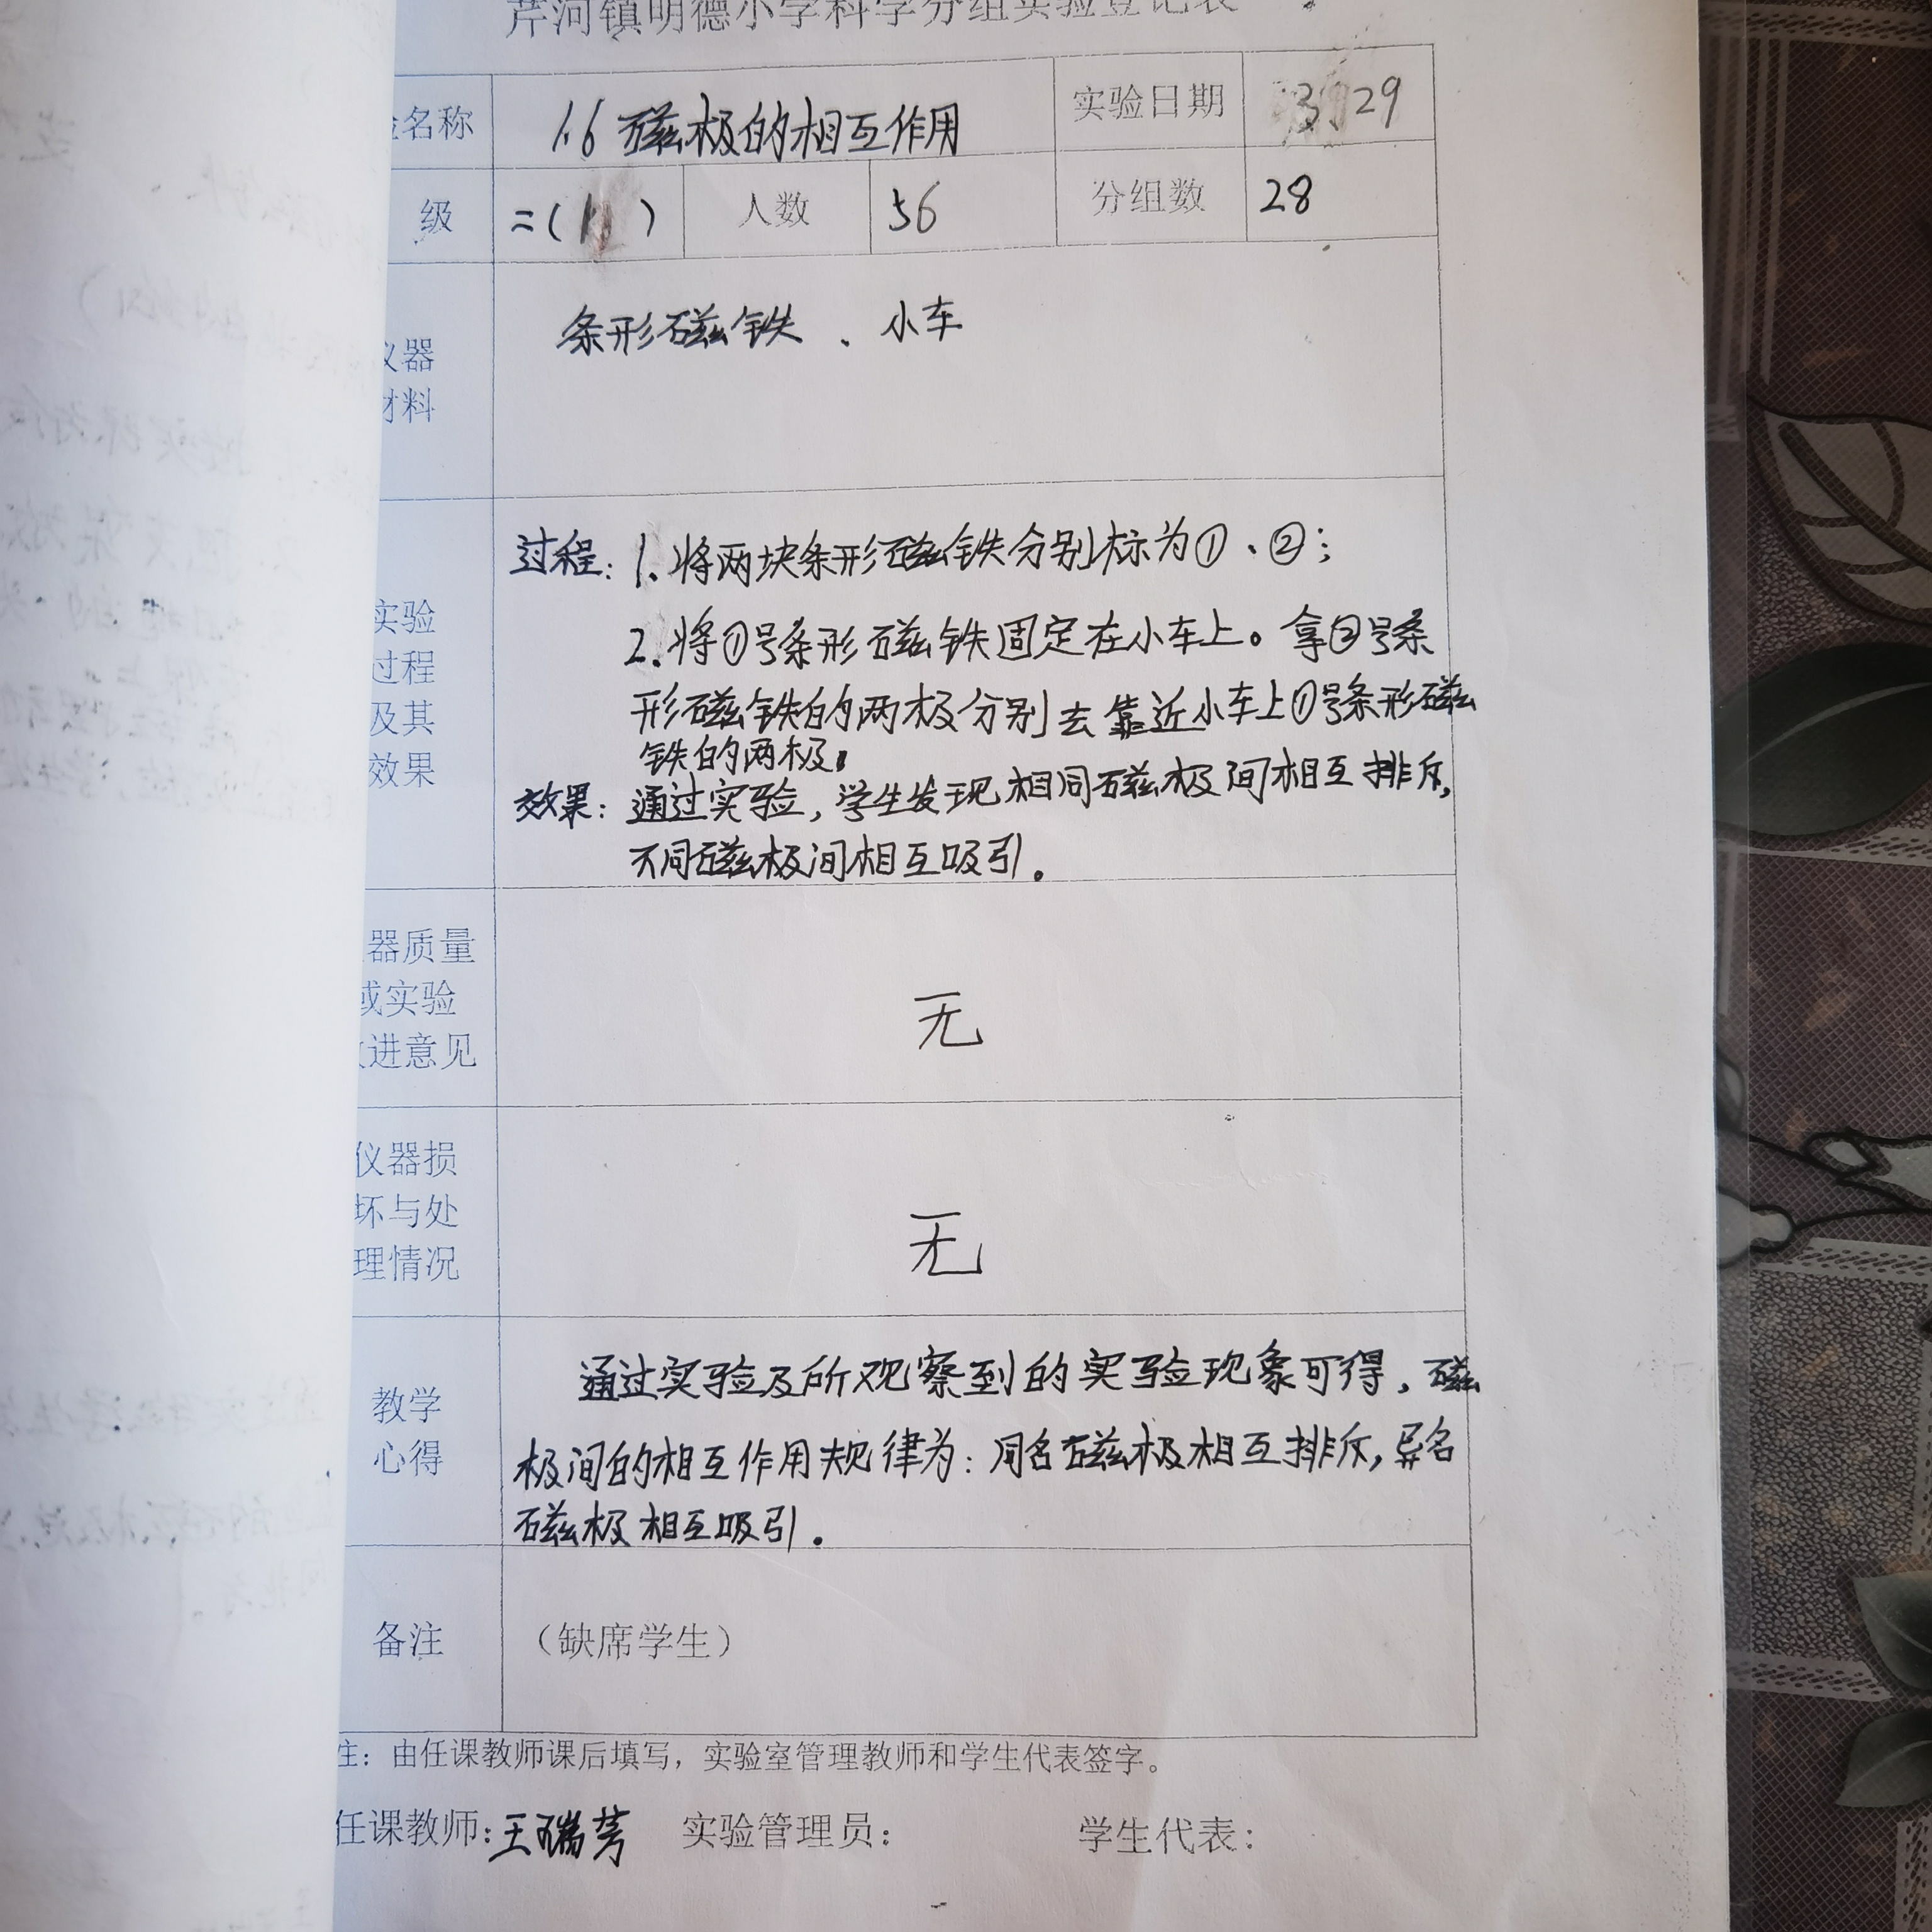 芹河镇明德小学科学分组实验登记表
名称 1.6 磁极的相互作用 实验日期 3 29
级 二( ) 人数 56 分组数 28
仪器
材料
条形磁铁 、 小车
实验
过程
及其
效果
过程: 1. 将两块条形磁铁分别标为①、②;
2. 将①号条形磁铁固定在小车上。拿②号条
形磁铁的两极分别去靠近小车上①号条形磁
铁的两极。
效果: 通过实验, 学生发现相同磁极间相互排斥,
不同磁极间相互吸引。
器质量
或实验
进意见
无
仪器损
坏与处
理情况
无
教学
心得
通过实验及所观察到的实验现象可得, 磁
极间的相互作用规律为: 同名磁极相互排斥, 异名
磁极相互吸引。
备注 （缺席学生）
注：由任课教师课后填写，实验室管理教师和学生代表签字。
任课教师: 王瑞芳 实验管理员： 学生代表：